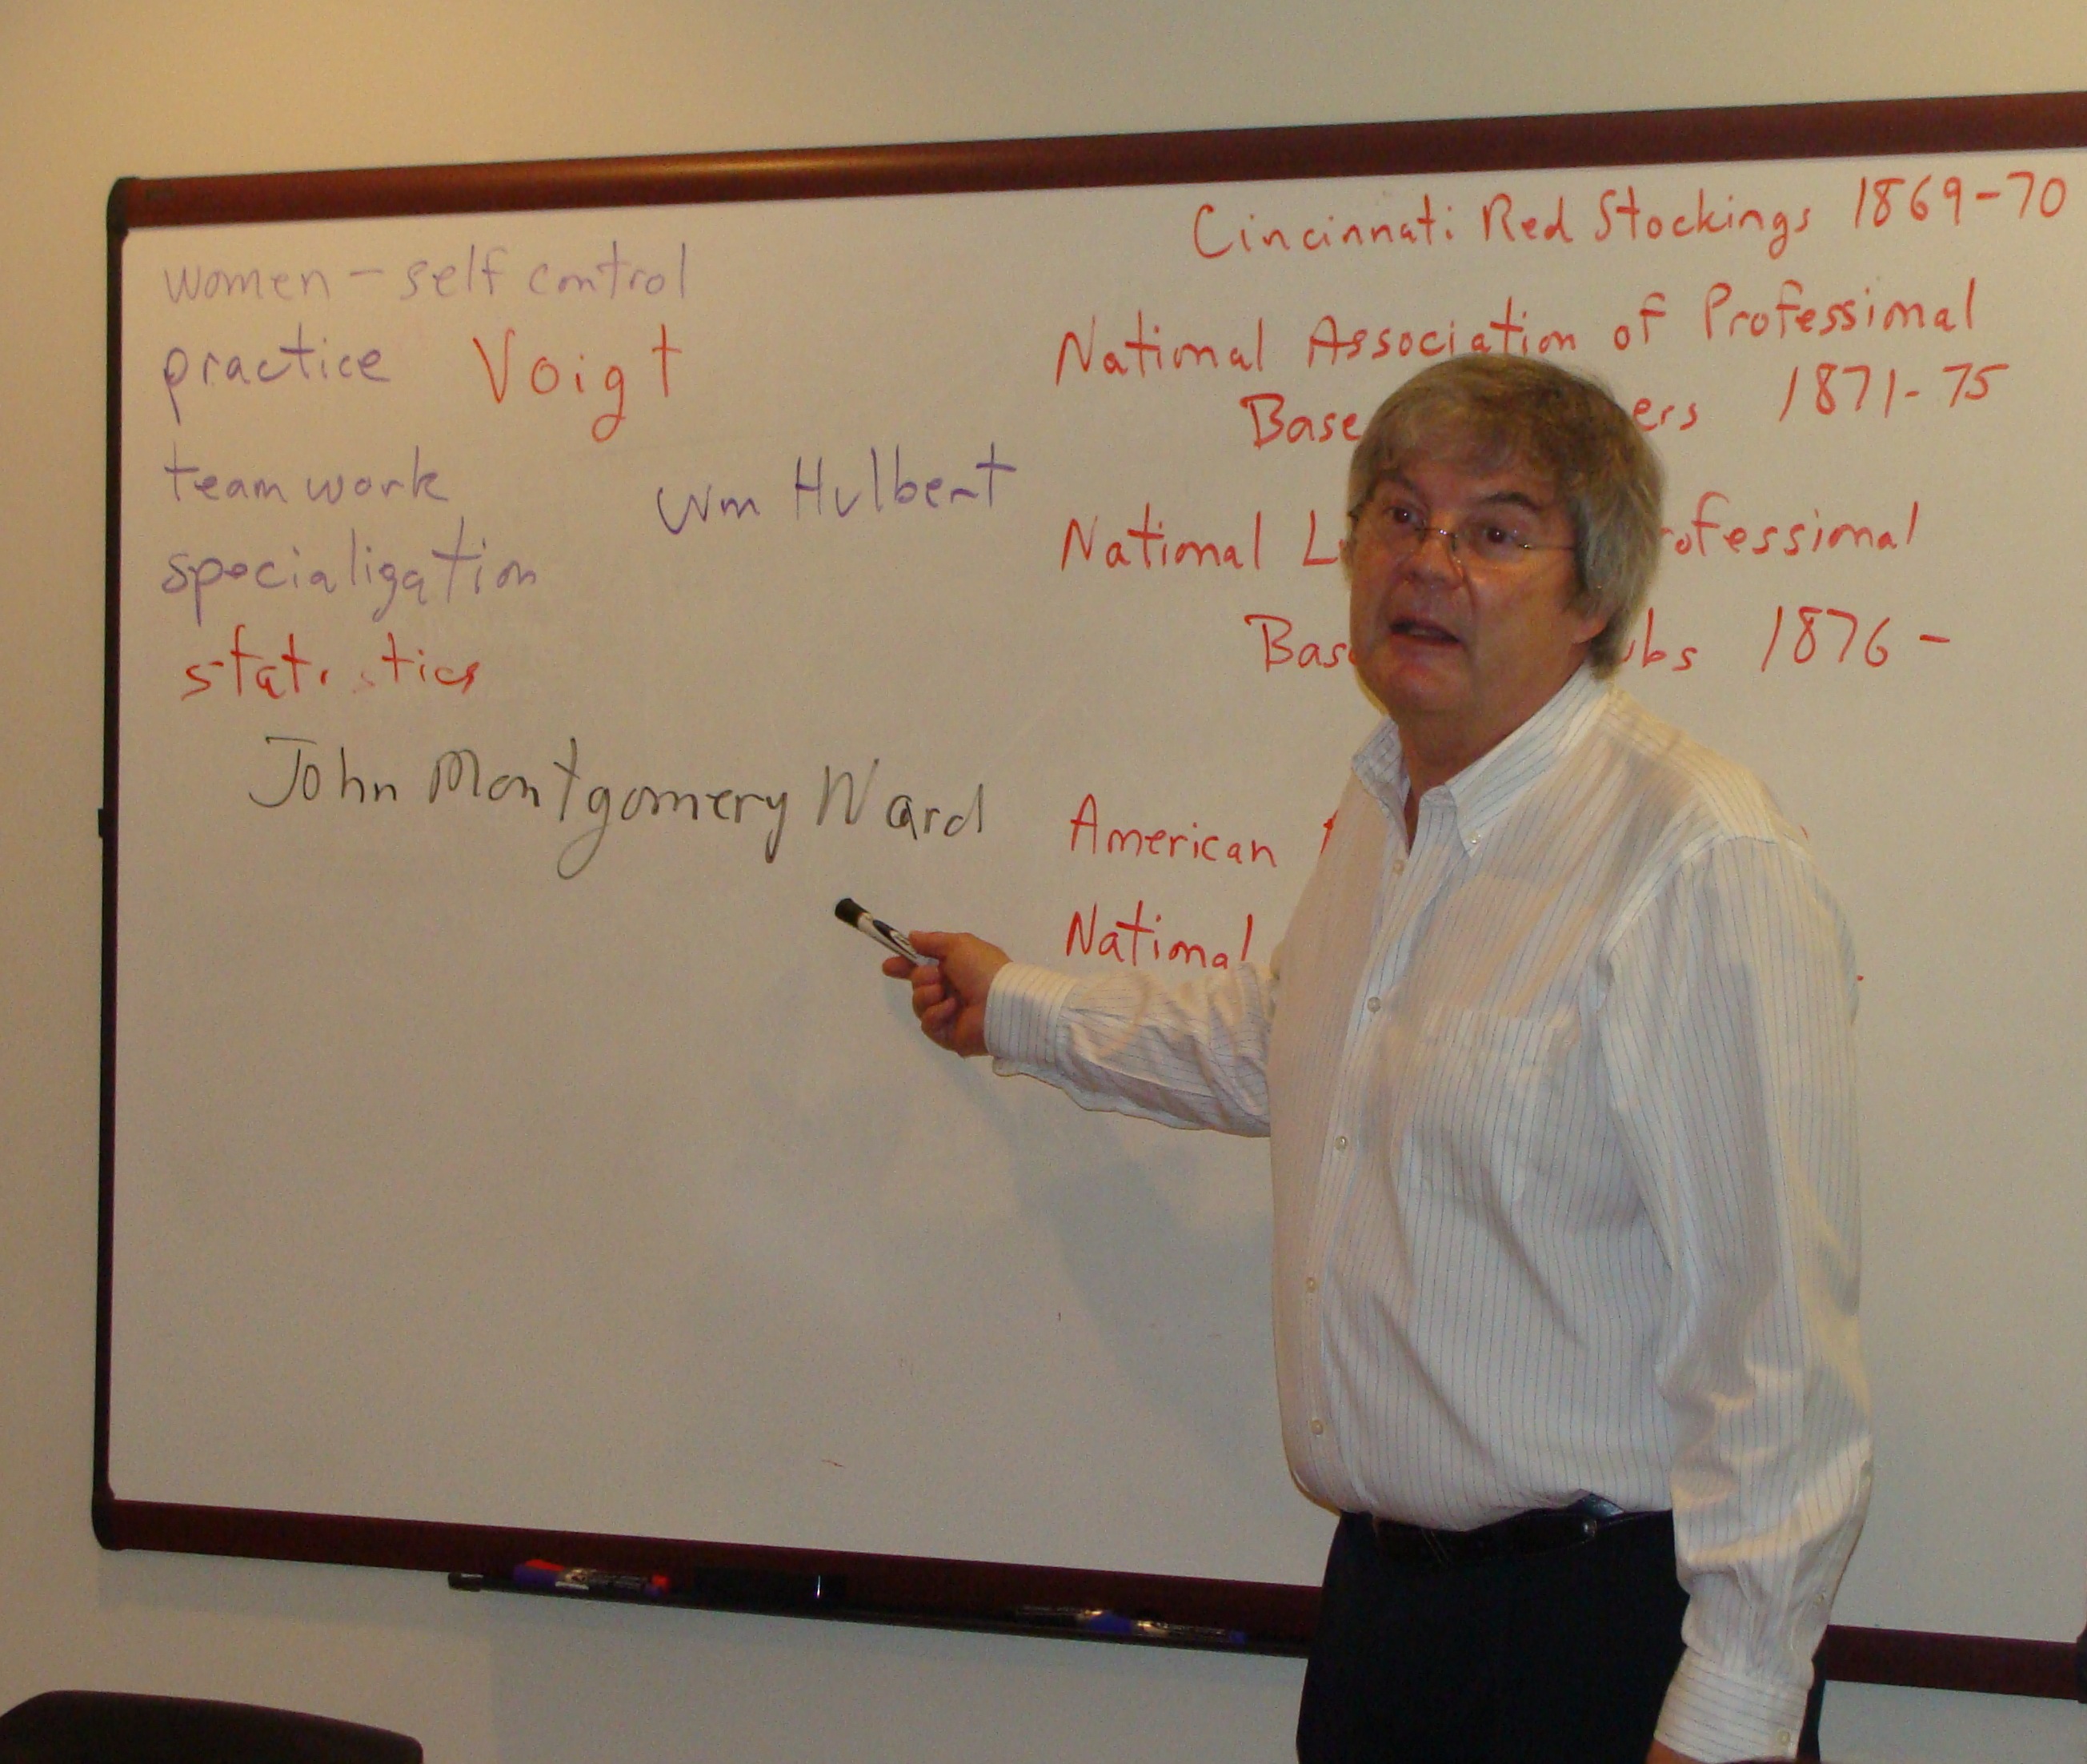 women - self control
practice
Voigt
teamwork
Wm Hulbert
specialization
statistics
John Montgomery Ward
Cincinnati Red Stockings 1869-70
National Association of Professional
Base ers 1871-75
National L rofessional
Bas ubs 1876-
American
National